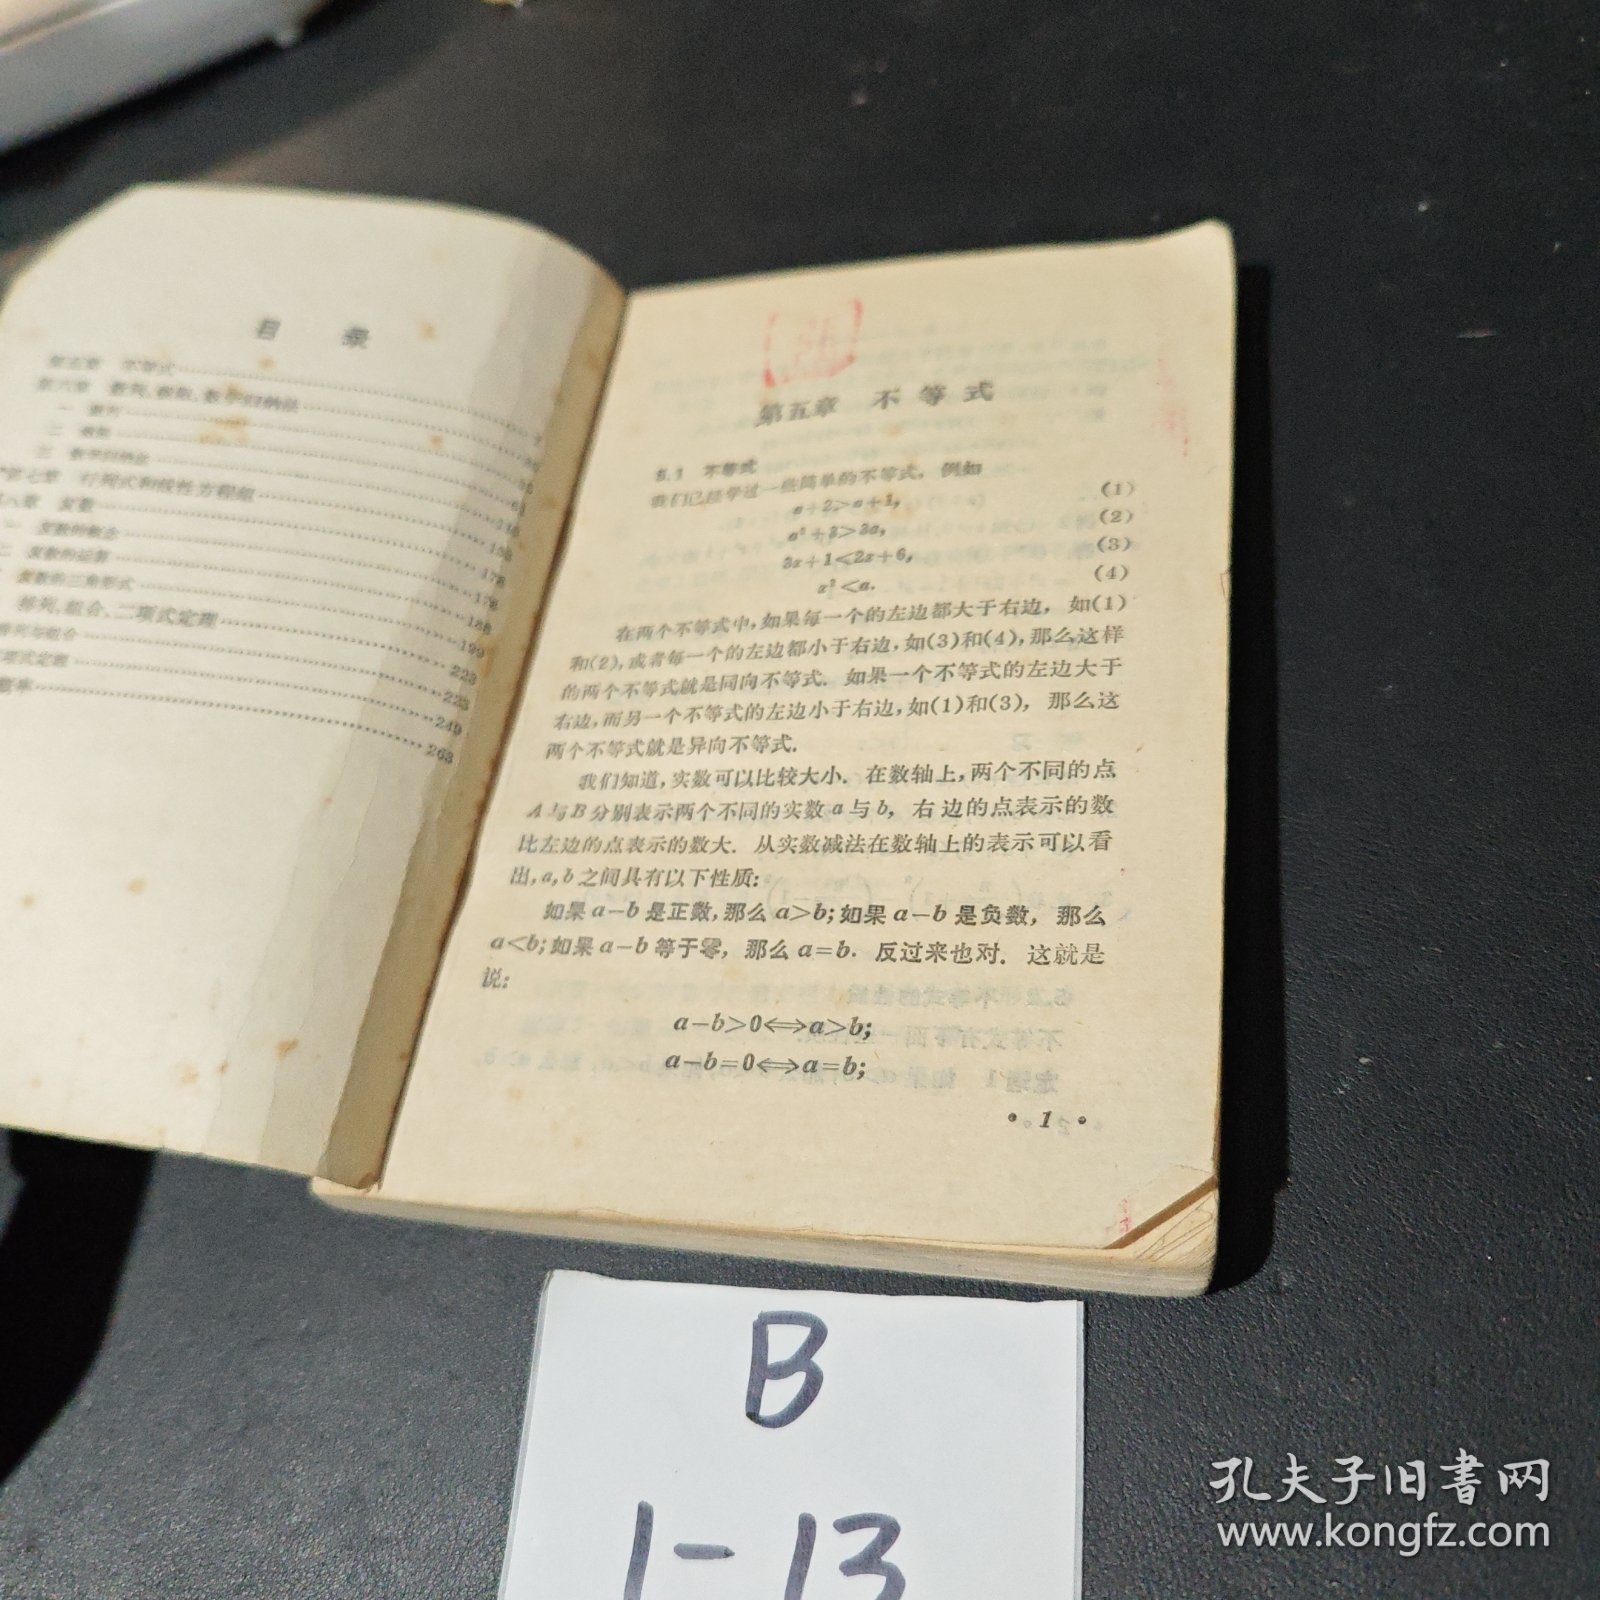 目 录
第五章 不等式
第六章 数列、极限、数学归纳法
一 数列
二 极限
三 数学归纳法
*第七章 行列式和线性方程组
八章 复数
一 复数的概念
二 复数的运算
复数的三角形式
178
排列、组合、二项式定理
188
排列与组合
199
项式定理
223
概率
225
249
263
第五章 不等式
5.1 不等式
我们已经学过一些简单的不等式,例如
a+2>a+1, (1)
a²+3>3a, (2)
3x+1<2x+6, (3)
x²<a. (4)
在两个不等式中,如果每一个的左边都大于右边,如(1)
和(2),或者每一个的左边都小于右边,如(3)和(4),那么这样
的两个不等式就是同向不等式. 如果一个不等式的左边大于
右边,而另一个不等式的左边小于右边,如(1)和(3),那么这
两个不等式就是异向不等式.
我们知道,实数可以比较大小. 在数轴上,两个不同的点
A与B分别表示两个不同的实数a与b,右边的点表示的数
比左边的点表示的数大. 从实数减法在数轴上的表示可以看
出,a,b之间具有以下性质:
如果a-b是正数,那么a>b;如果a-b是负数,那么
a<b;如果a-b等于零,那么a=b. 反过来也对. 这就是
说:
a-b>0⟺a>b;
a-b=0⟺a=b;
• 1 •
B
1-13
孔夫子旧书网
www.kongfz.com